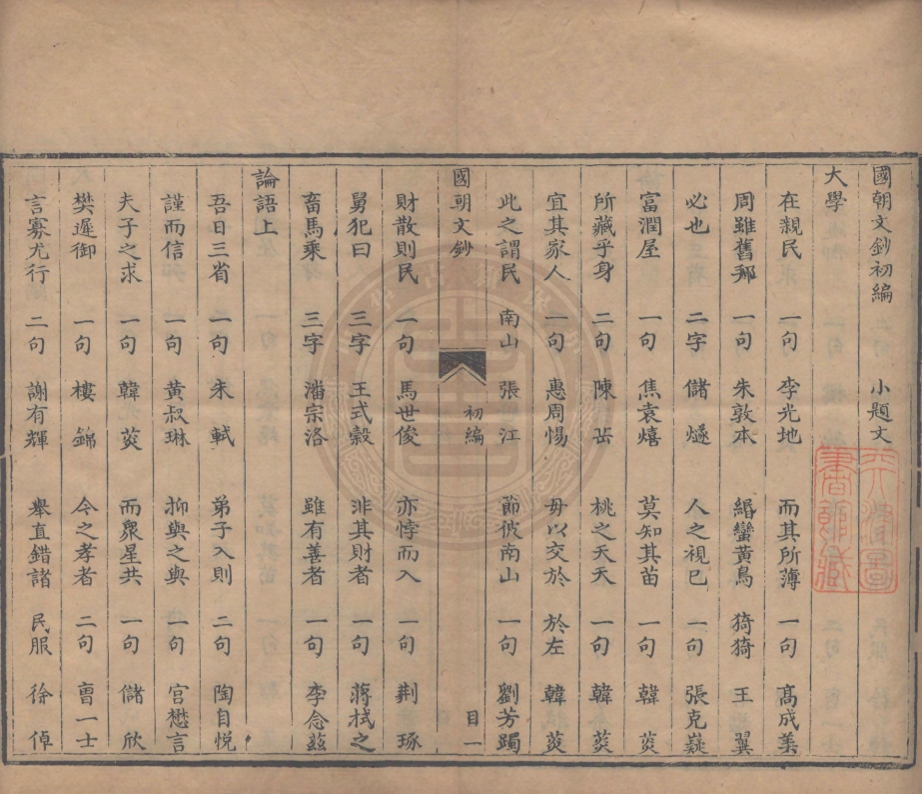 國朝文鈔初編 小題文
大學
在親民 一句 李光地 而其所薄 一句 高成美
周雖舊邦 一句 朱敦本 緡蠻黃鳥 猗猗 王翼
必也 二字 儲㷞 人之視己 一句 張克嶷
富潤屋 一句 焦袁熹 莫知其苗 一句 韓菼
所藏乎身 二句 陳岳 桃之夭夭 一句 韓菼
宜其家人 一句 惠周惕 毋以交於 於左 韓菼
此之謂民 南山 張江 節彼南山 一句 劉芳躅
國朝文鈔 初編 目一
財散則民 一句 馬世俊 亦悖而入 一句 荆琢
舅犯曰 三字 王式穀 非其財者 一句 蔣栻之
畜馬乘 三字 潘宗洛 雖有善者 一句 李念茲
論語上
吾日三省 一句 朱軾 弟子入則 二句 陶自悅
謹而信 一句 黃叔琳 抑與之與 一句 宮懋言
夫子之求 一句 韓菼 而眾星共 一句 儲欣
樊遲御 一句 樓錦 今之孝者 二句 曹一士
言寡尤行 二句 謝有輝 舉直錯諸 民服 徐倬